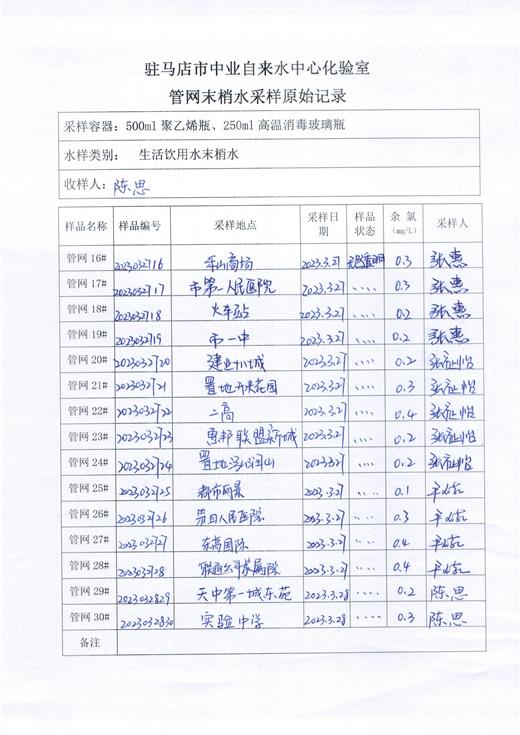 驻马店市中业自来水中心化验室
管网末梢水采样原始记录
采样容器：500ml 聚乙烯瓶、250ml 高温消毒玻璃瓶
水样类别： 生活饮用水末梢水
收样人：陈思
样品名称 样品编号 采样地点 采样日期 样品状态 余 氯 (mg/L) 采样人
管网 16# 2023032716 乐山商场 2023.3.27 无色透明 0.3 张惠
管网 17# 2023032717 市第一人民医院 2023.3.27 、、、、 0.3 张惠
管网 18# 2023032718 火车站 2023.3.27 、、、、 0.2 张惠
管网 19# 2023032719 市一中 2023.3.27 、、、、 0.2 张惠
管网 20# 2023032720 建业十八城 2023.3.27 、、、、 0.2
管网 21# 2023032721 置地开来花园 2023.3.27 、、、、 0.3
管网 22# 2023032722 二高 2023.3.27 、、、、 0.4
管网 23# 2023032723 惠邦联盟新城 2023.3.27 、、、、 0.2
管网 24# 2023032724 置地 山 2023.3.27 、、、、 0.2
管网 25# 2023032725 都市丽景 2023.3.27 、、、 0.1
管网 26# 2023032726 人民医院 2023.3.27 、、、 0.3
管网 27# 2023032727 东高国际 2023.3.27 、、、、 0.4
管网 28# 2023032728 联通公司家属院 2023.3.27 、、、、 0.4
管网 29# 2023032829 天中第一城东苑 2023.3.28 、、、、 0.2 陈思
管网 30# 2023032830 实验中学 2023.3.28 、、、、 0.3 陈思
备注